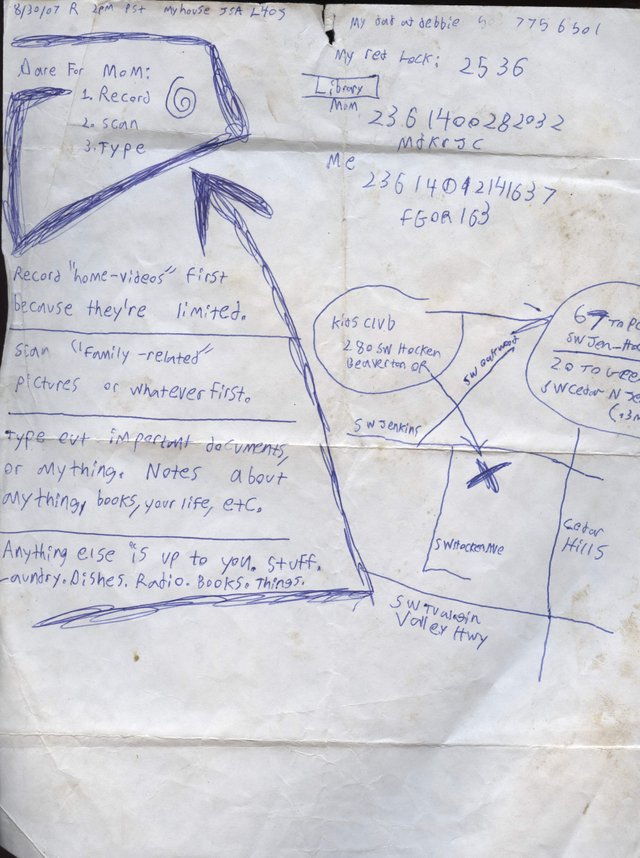 8/30/07 R 2PM PST Myhouse JSA L40J
Dare For MoM:
1. Record
2. scan
3. Type
Record "home-videos" first
because they're limited.
Scan "Family-related"
pictures or whatever first.
Type out important documents,
or anything. Notes about
anything, books, your life, etc.
Anything else is up to you. Stuff.
Laundry. Dishes. Radio. Books. Things.
My dat at debbie 7756501
My red Lock: 2536
Library
Mom
2361400282032
MJKRJC
Me
23614042141637
FGOR163
Kids Club
280 SW Hocken
Beaverton OR
SW Jenkins
67 To
SW Jen
20 TO
SW Cedar N
SW Hocken Ave
Cedar
Hills
SW Tualatin
Valley Hwy